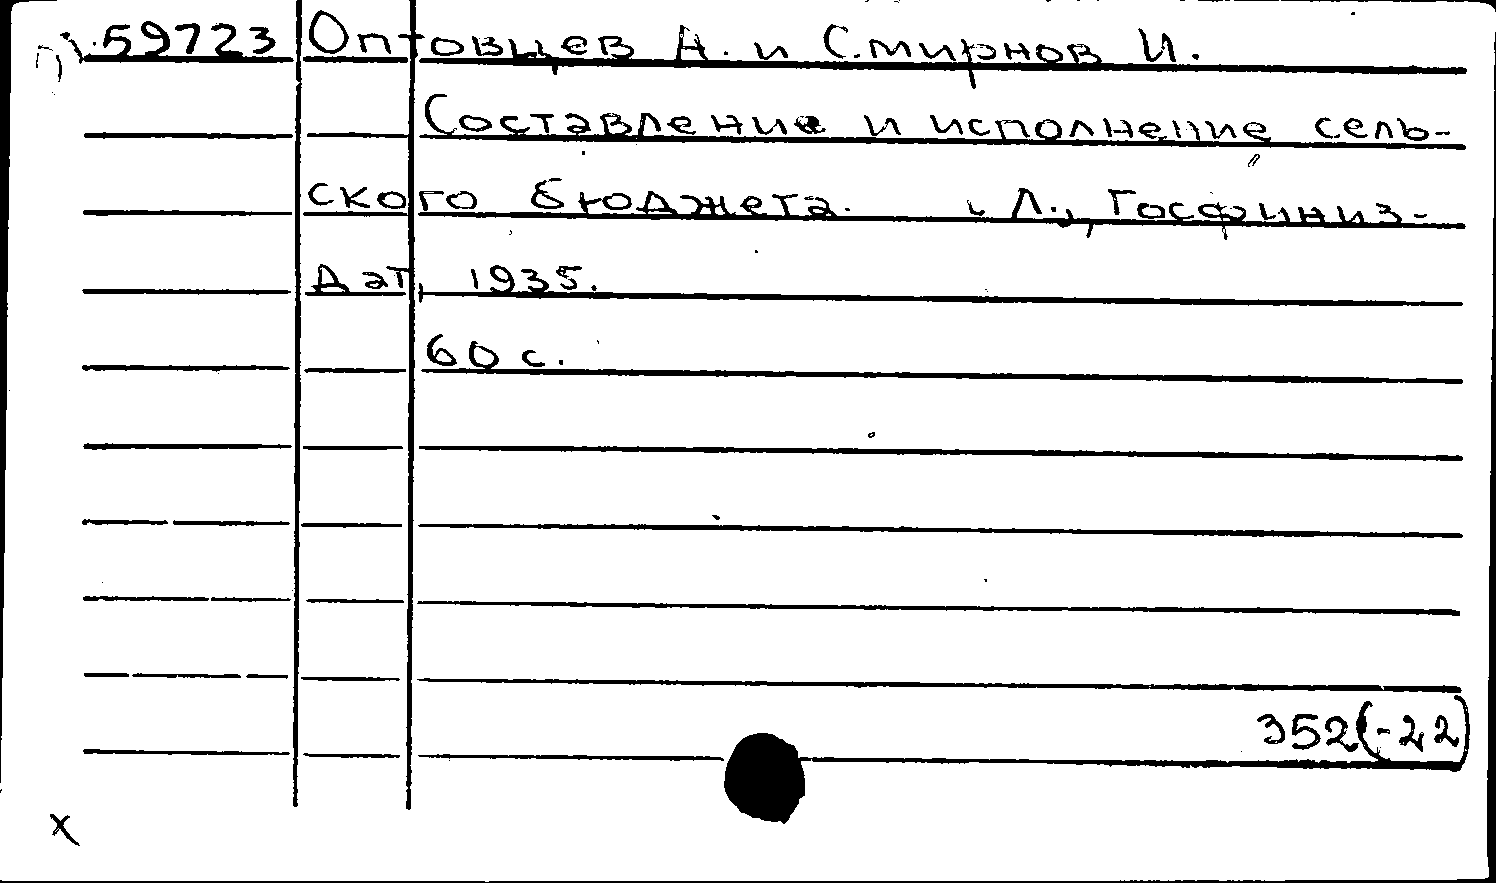 59723 Оптовцев А. и Смирнов И.
Составление и исполнение сель-
ского бюджета. Л., Госфиниз-
дат, 1935.
60 с.
352(-22)
х